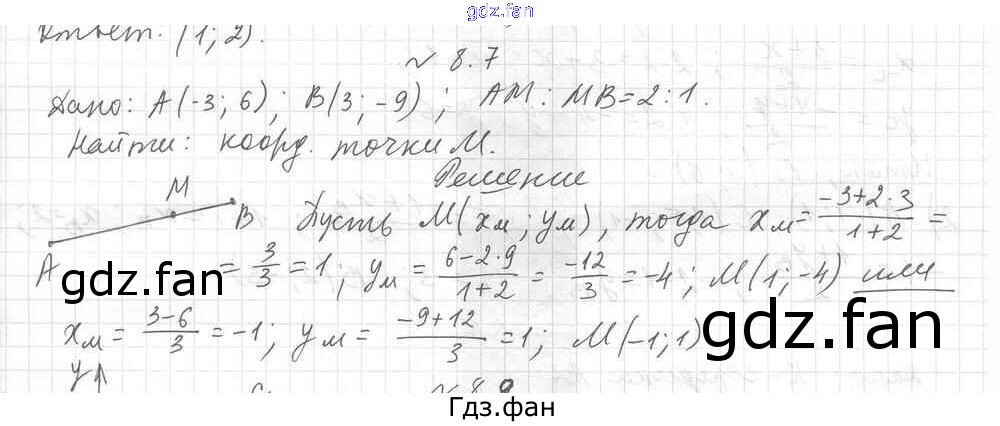 gdz.fan
Ответ: (1; 2).
№ 8.7
Дано: A(-3; 6); B(3; -9); AM: MB=2:1.
Найти: коорд. точки M.
Решение
M
A
B
Пусть M(xм; yм), тогда xм = (-3+2·3)/(1+2) =
= 3/3 = 1; yм = (6-2·9)/(1+2) = -12/3 = -4; M(1; -4) или
gdz.fan
xм = (3-6)/3 = -1; yм = (-9+12)/3 = 1; M(-1; 1)
gdz.fan
y
Гдз.фан